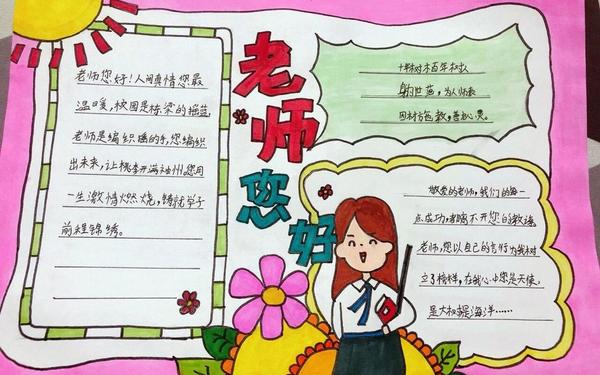 老师您好
老师您好！人间真情您最
温暖，校园是栋梁的摇篮，
老师是编织摇的手，您编织
出未来，让桃李开满神州。您用
一生激情燃烧，铸就学子
前程锦绣。
十年树木百年树人
躬世范，为人师表
因材施教，善心灵。
敬爱的老师，我们的每一
点成功，都离不开您的教诲，
老师，您以自己的言行为我树
立了榜样，在我心中您是天使，
是大海洋……